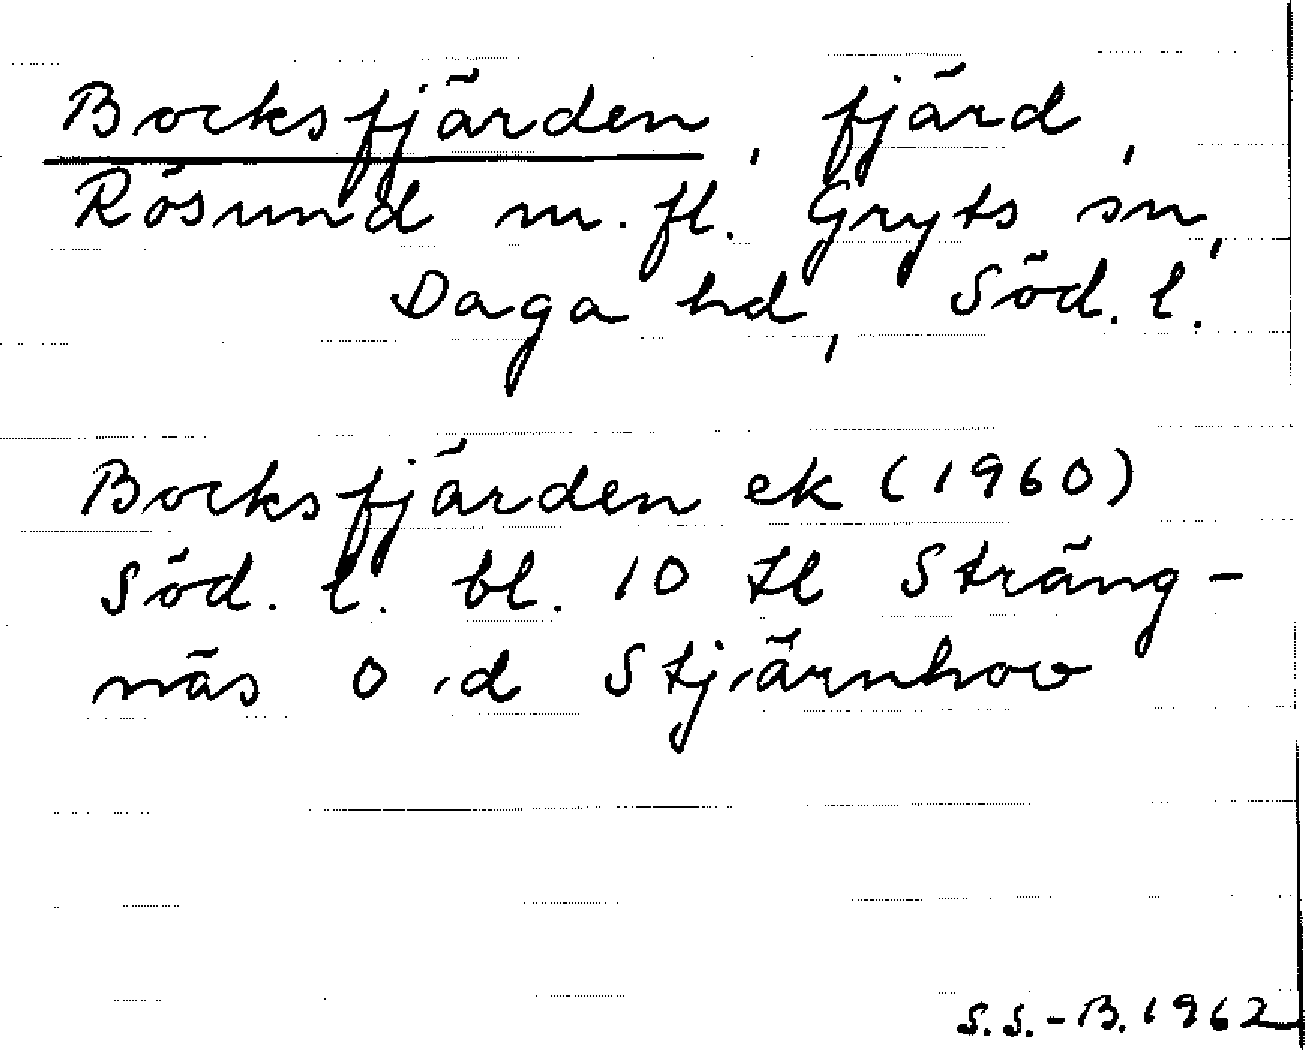 Bocksfjärden, fjärd,
Rösund m.fl. Gryts sn,
Daga hd, Söd. l.
Bocksfjärden ek (1960)
Söd. l. bl. 10 tl Sträng-
näs 0 .d Stjärnhov
S.S.-B. 1962